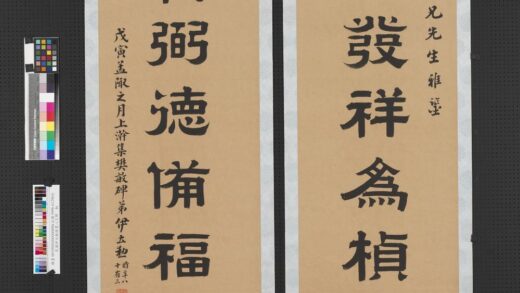 兄先生雅鑒
發祥為楨
弼德備福
戊寅孟陬之月上澣集樊敏碑弟伊立勳
時年八
十有三